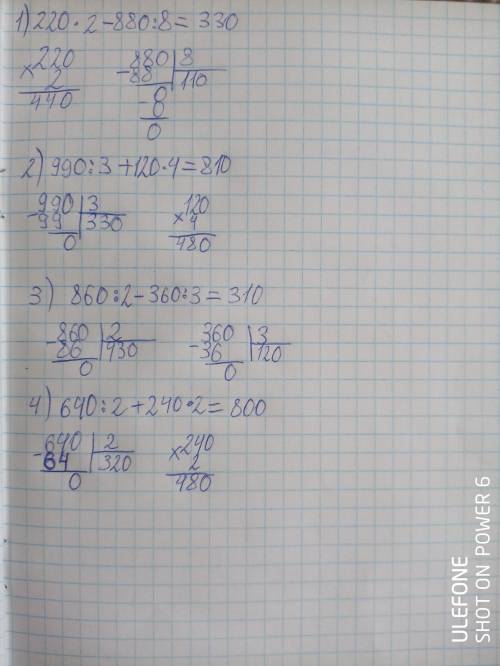 1) 220 · 2 - 880 : 8 = 330
220
× 2
440
- 880 | 8
88 | 110
- 8
8
0
2) 990 : 3 + 120 · 4 = 810
- 990 | 3
99 | 330
0
120
× 4
480
3) 860 : 2 - 360 : 3 = 310
- 860 | 2
86 | 430
0
- 360 | 3
36 | 120
0
4) 640 : 2 + 240 · 2 = 800
- 640 | 2
64 | 320
0
× 240
2
480
ULEFONE
SHOT ON POWER 6